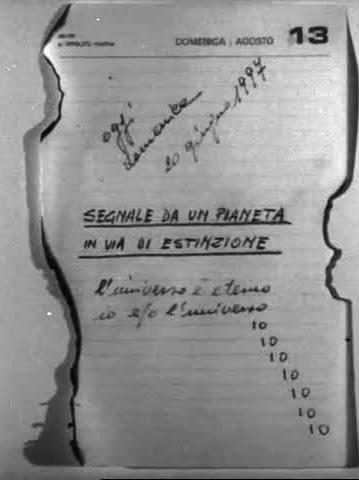 S. IPPOLITO martire
DOMENICA | AGOSTO 13
oggi
domenica
20 giugno 1997
SEGNALE DA UN PIANETA
IN VIA DI ESTINZIONE
l'universo è eterno
io e/o l'universo
IO
IO
IO
IO
IO
IO
IO